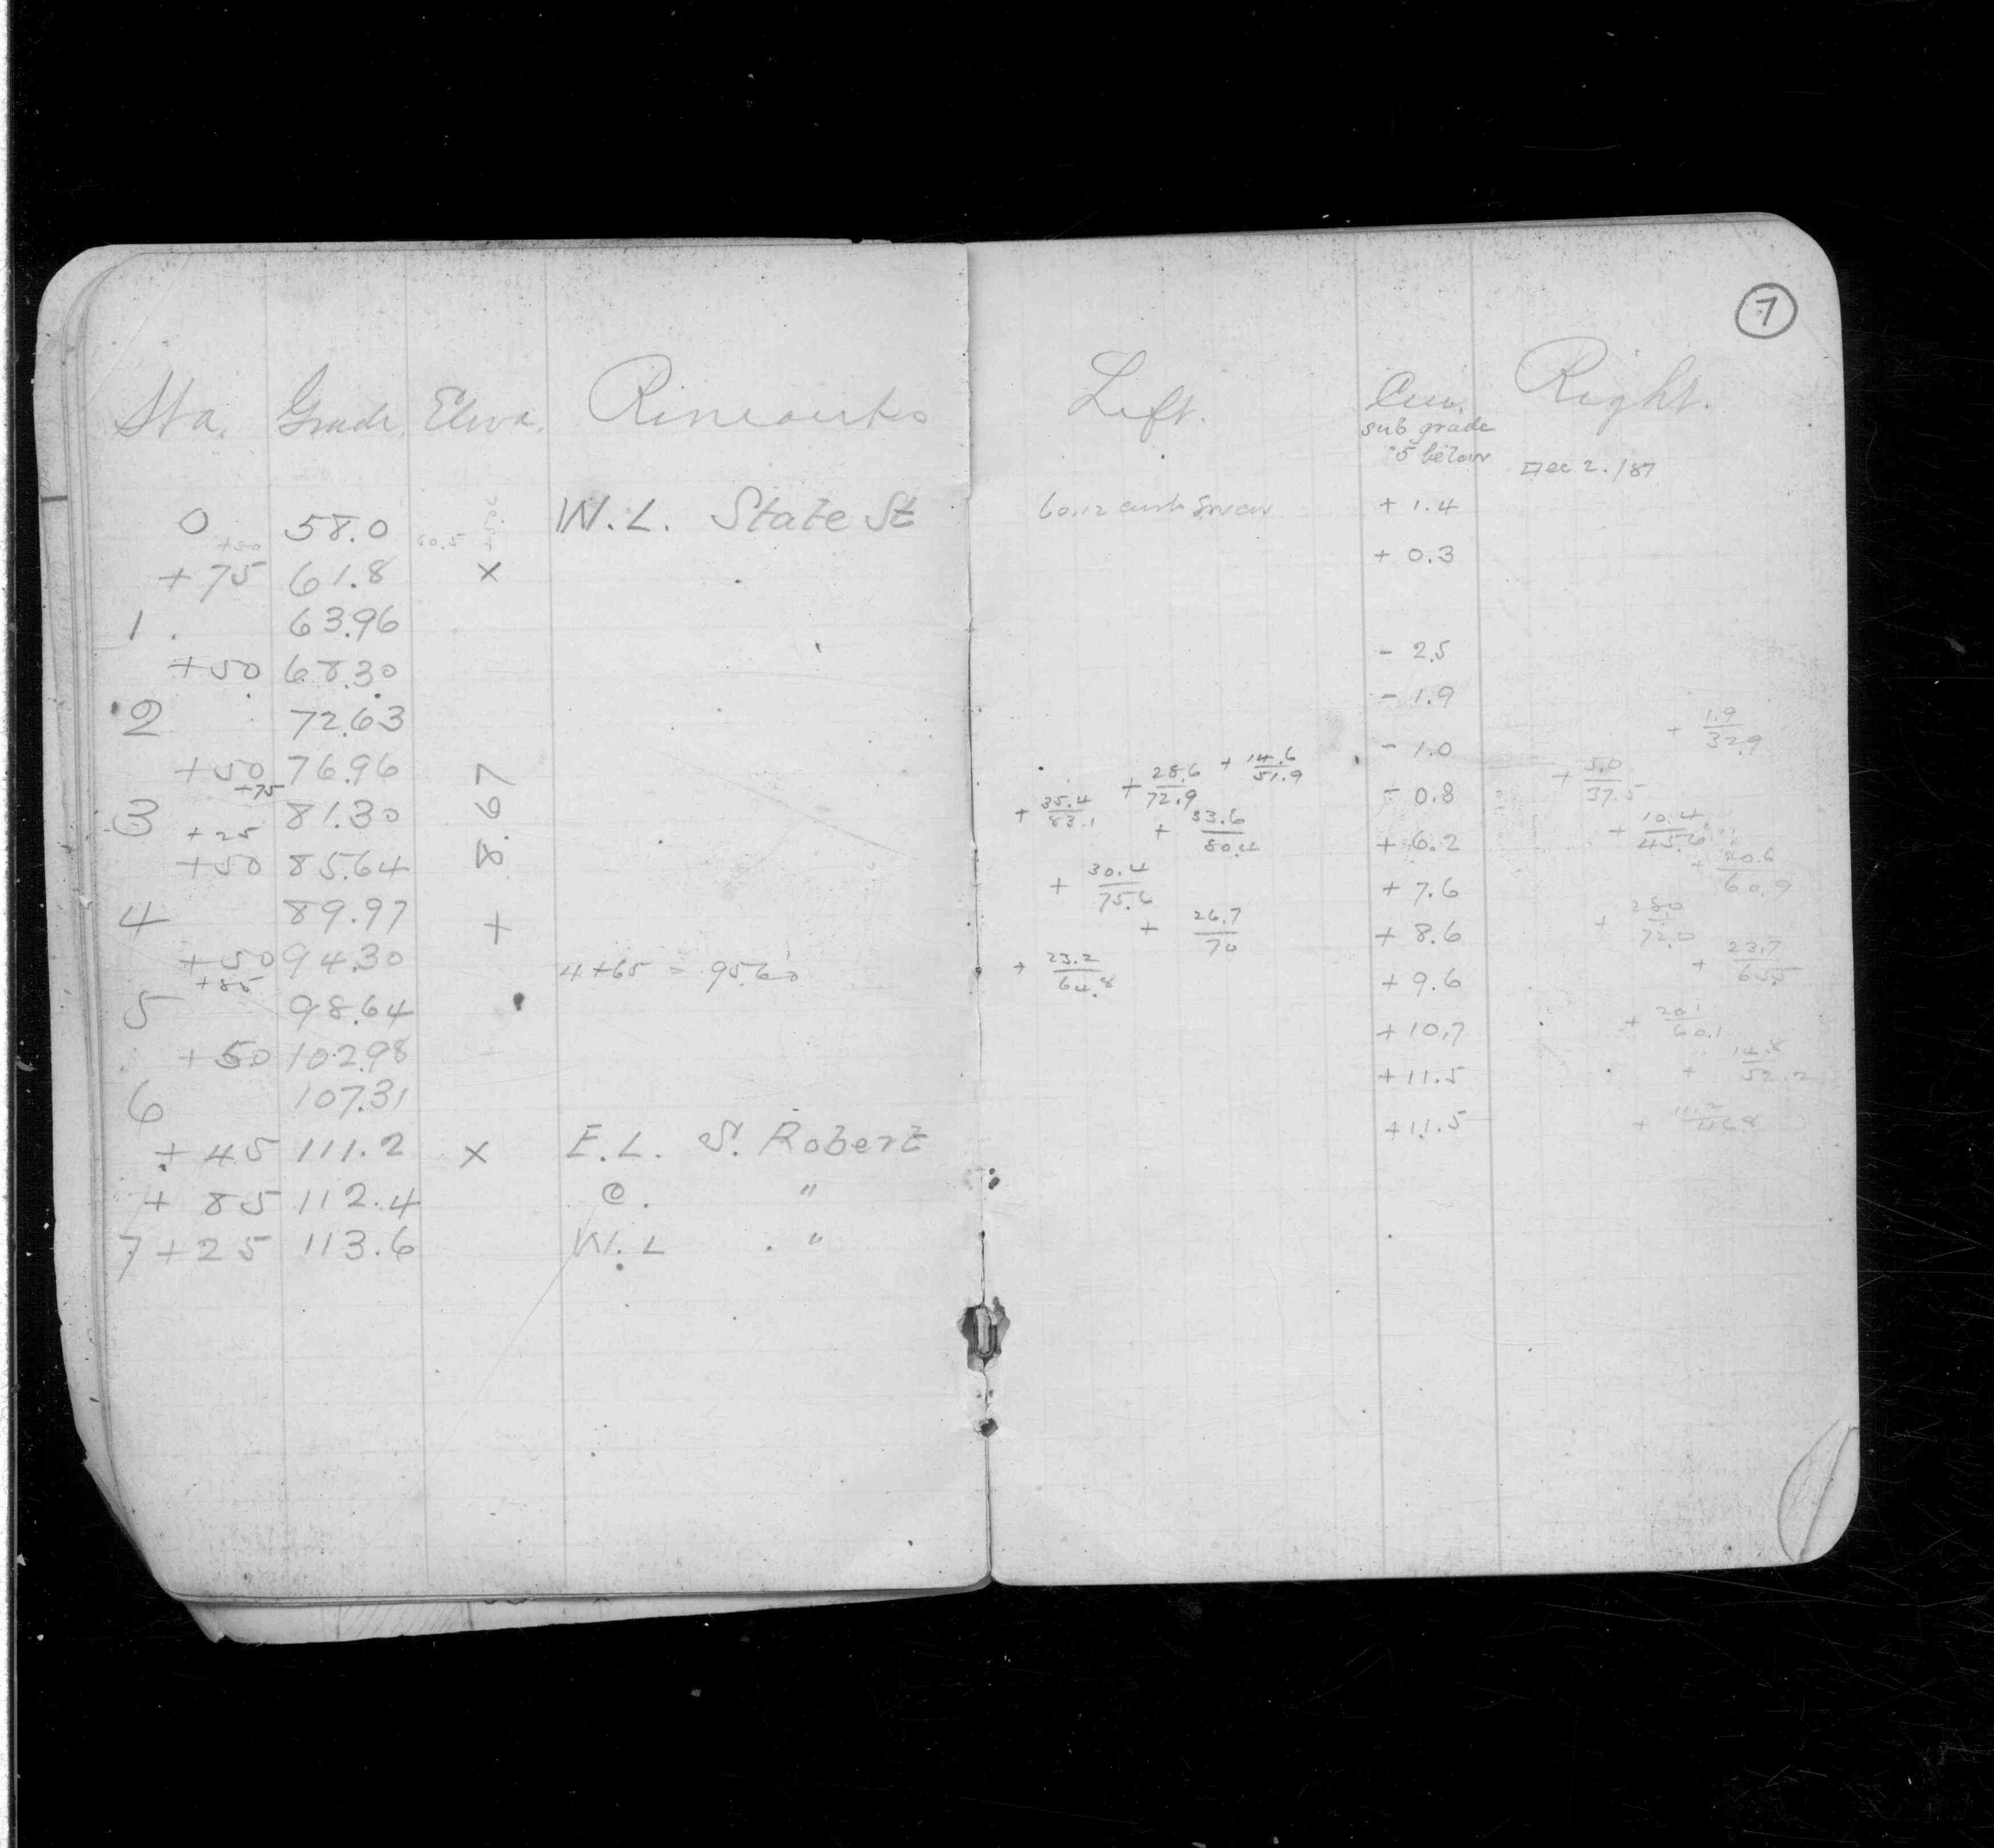 Sta. Grade. Eleva. Rimearks
0 58.0 W.L. State St
+50 60.5
+75 61.8 x
1. 63.96
+50 68.30
2 72.63
+50 76.96
+75
3 81.30
8.67
+25
+50 85.64
4 89.97 +
+50 94.30 4+65 = 95.60
+85
5 98.64
+50 102.98
6 107.31
+45 111.2 x E.L. S. Robert
+85 112.4 C. "
7+25 113.6 W.L. "
7
Left. Cen. Right.
sub grade
.5 below Dec 2. /87
60.12 + 1.4
+ 0.3
- 2.5
- 1.9
- 1.0 + 1.9/32.9
+ 28.6/72.9 + 14.6/51.9
+ 35.4/83.1 - 0.8 + 5.0/37.5
+ 33.6/80.4 + 6.2 + 10.4/45.6
+ 30.4/75.6 + 7.6 + 20.6/60.9
+ 26.7/70 + 8.6 + 28.0/72.0
+ 23.2/64.8 + 9.6 + 23.7/65.5
+ 10.7 + 20.1/60.1
+ 11.5 + 14.8/52.2
+ 11.5 + 11.2/46.8